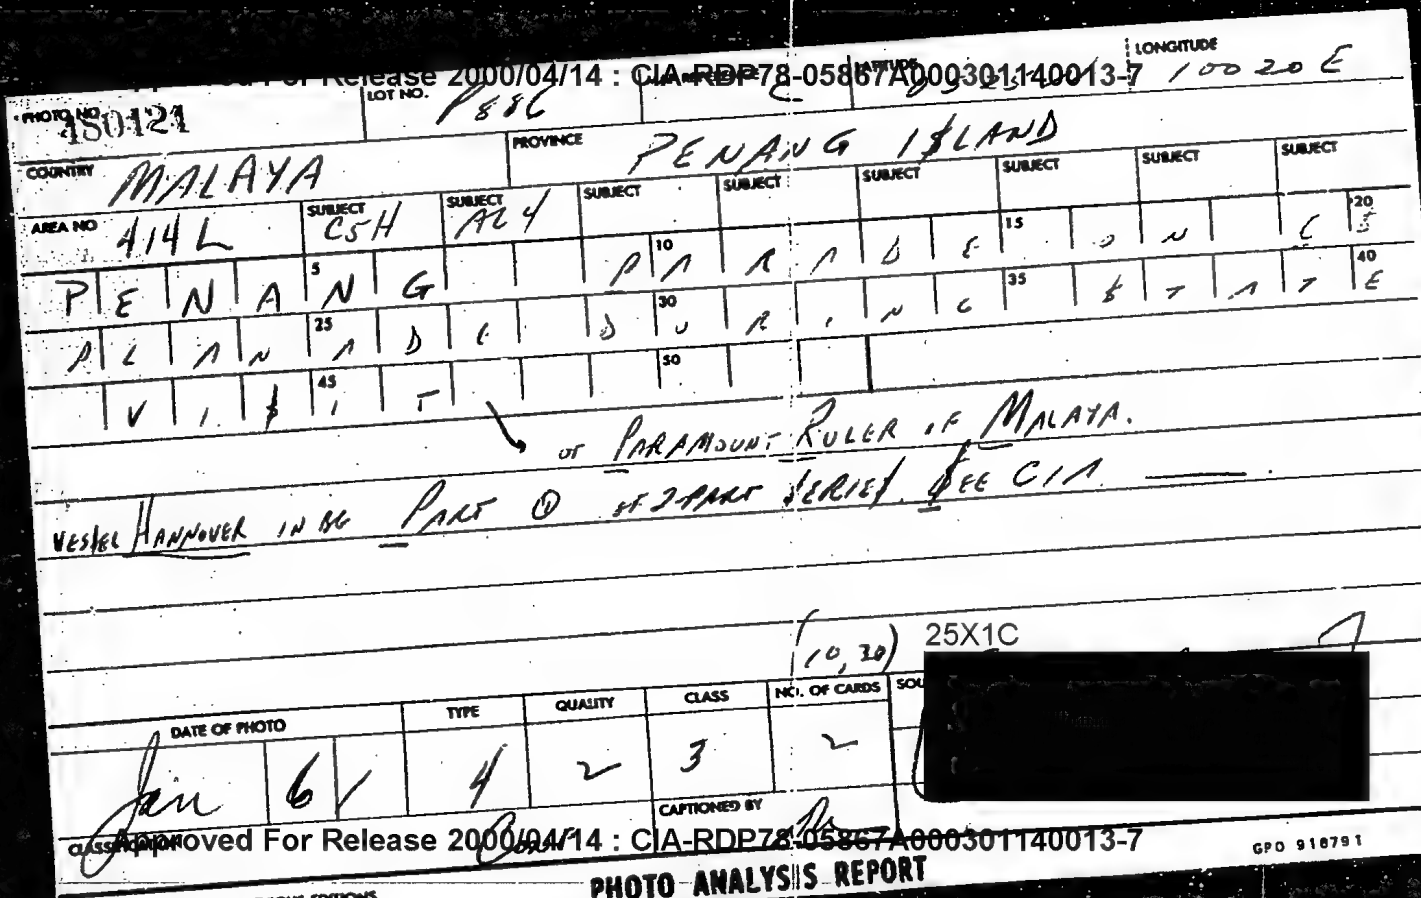 LONGITUDE
For Release 2000/04/14 : CIA-RDP78-05867A000301140013-7 10020E
PHOTO NO. 480121 LOT NO. P886
COUNTRY MALAYA PROVINCE PENANG ISLAND
AREA NO 414L SUBJECT C5H SUBJECT AC4 SUBJECT SUBJECT SUBJECT SUBJECT SUBJECT SUBJECT
PENANG PARADE ON C 5 10 15 20
PLANADE DURING STATE 25 30 35 40
VISIT 45 50
OF PARAMOUNT RULER OF MALAYA.
VESSEL HANNOVER IN BG PART 1 OF 2-PART SERIES. SEE CIA
(10,30) 25X1C
DATE OF PHOTO TYPE QUALITY CLASS NO. OF CARDS SOU
Jan 61 4 2 3 2
CAPTIONED BY
CLASSIFICATION Approved For Release 2000/04/14 : CIA-RDP78-05867A000301140013-7
GPO 918791
PHOTO ANALYSIS REPORT
EDITIONS